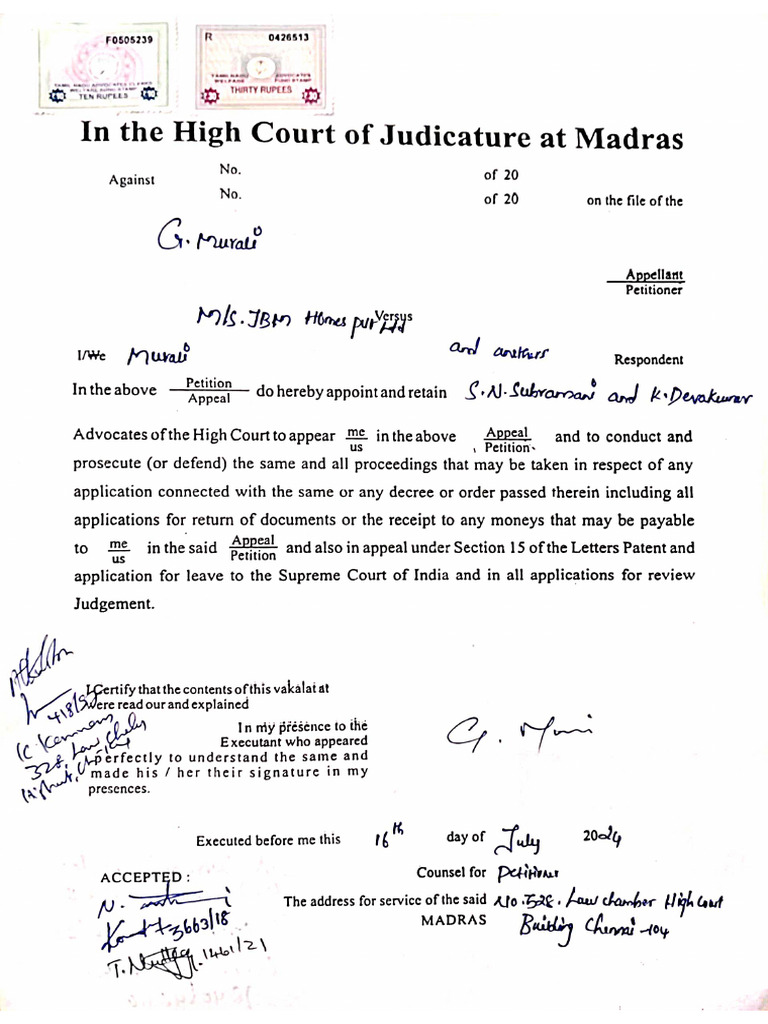 F0505239
TAMIL NADU ADVOCATES CLERKS
WELFARE FUND STAMP
TEN RUPEES
R 0426513
TAMIL NADU ADVOCATES
WELFARE FUND STAMP
THIRTY RUPEES
In the High Court of Judicature at Madras
No. of 20
Against
No. of 20 on the file of the
G. Murali
Appellant
Petitioner
Versus
M/s. JBM Homes pvt Ltd
and another
I/We Murali Respondent
In the above Petition / Appeal do hereby appoint and retain S.N. Subramani and K. Devakumar
Advocates of the High Court to appear me / us in the above Appeal / Petition and to conduct and
prosecute (or defend) the same and all proceedings that may be taken in respect of any
application connected with the same or any decree or order passed therein including all
applications for return of documents or the receipt to any moneys that may be payable
to me / us in the said Appeal / Petition and also in appeal under Section 15 of the Letters Patent and
application for leave to the Supreme Court of India and in all applications for review
Judgement.
I Certify that the contents of this vakalat at
were read our and explained
In my presence to the
Executant who appeared
perfectly to understand the same and
made his / her their signature in my
presences.
328, Law
G.
Executed before me this 16th day of July 2024
ACCEPTED :
Counsel for Petitioner
The address for service of the said No. 328. Law chamber High Court
MADRAS Building Chennai -104
3663/18
T. 1461/21